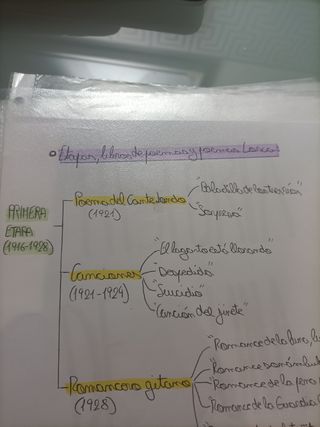 Etapas, libros de poemas y poemas Lorca
PRIMERA
ETAPA
(1916-1928)
Poema del Cante Jondo
(1921)
"Baladilla de los tres ríos"
"Sorpresa"
Canciones
(1921-1924)
"El lagarto está llorando"
"Despedida"
"Suicidio"
"Canción del jinete"
Romancero gitano
(1928)
"Romance de la luna,
"Romance sonámbulo
"Romance de la pena
"Romance de la Guardia